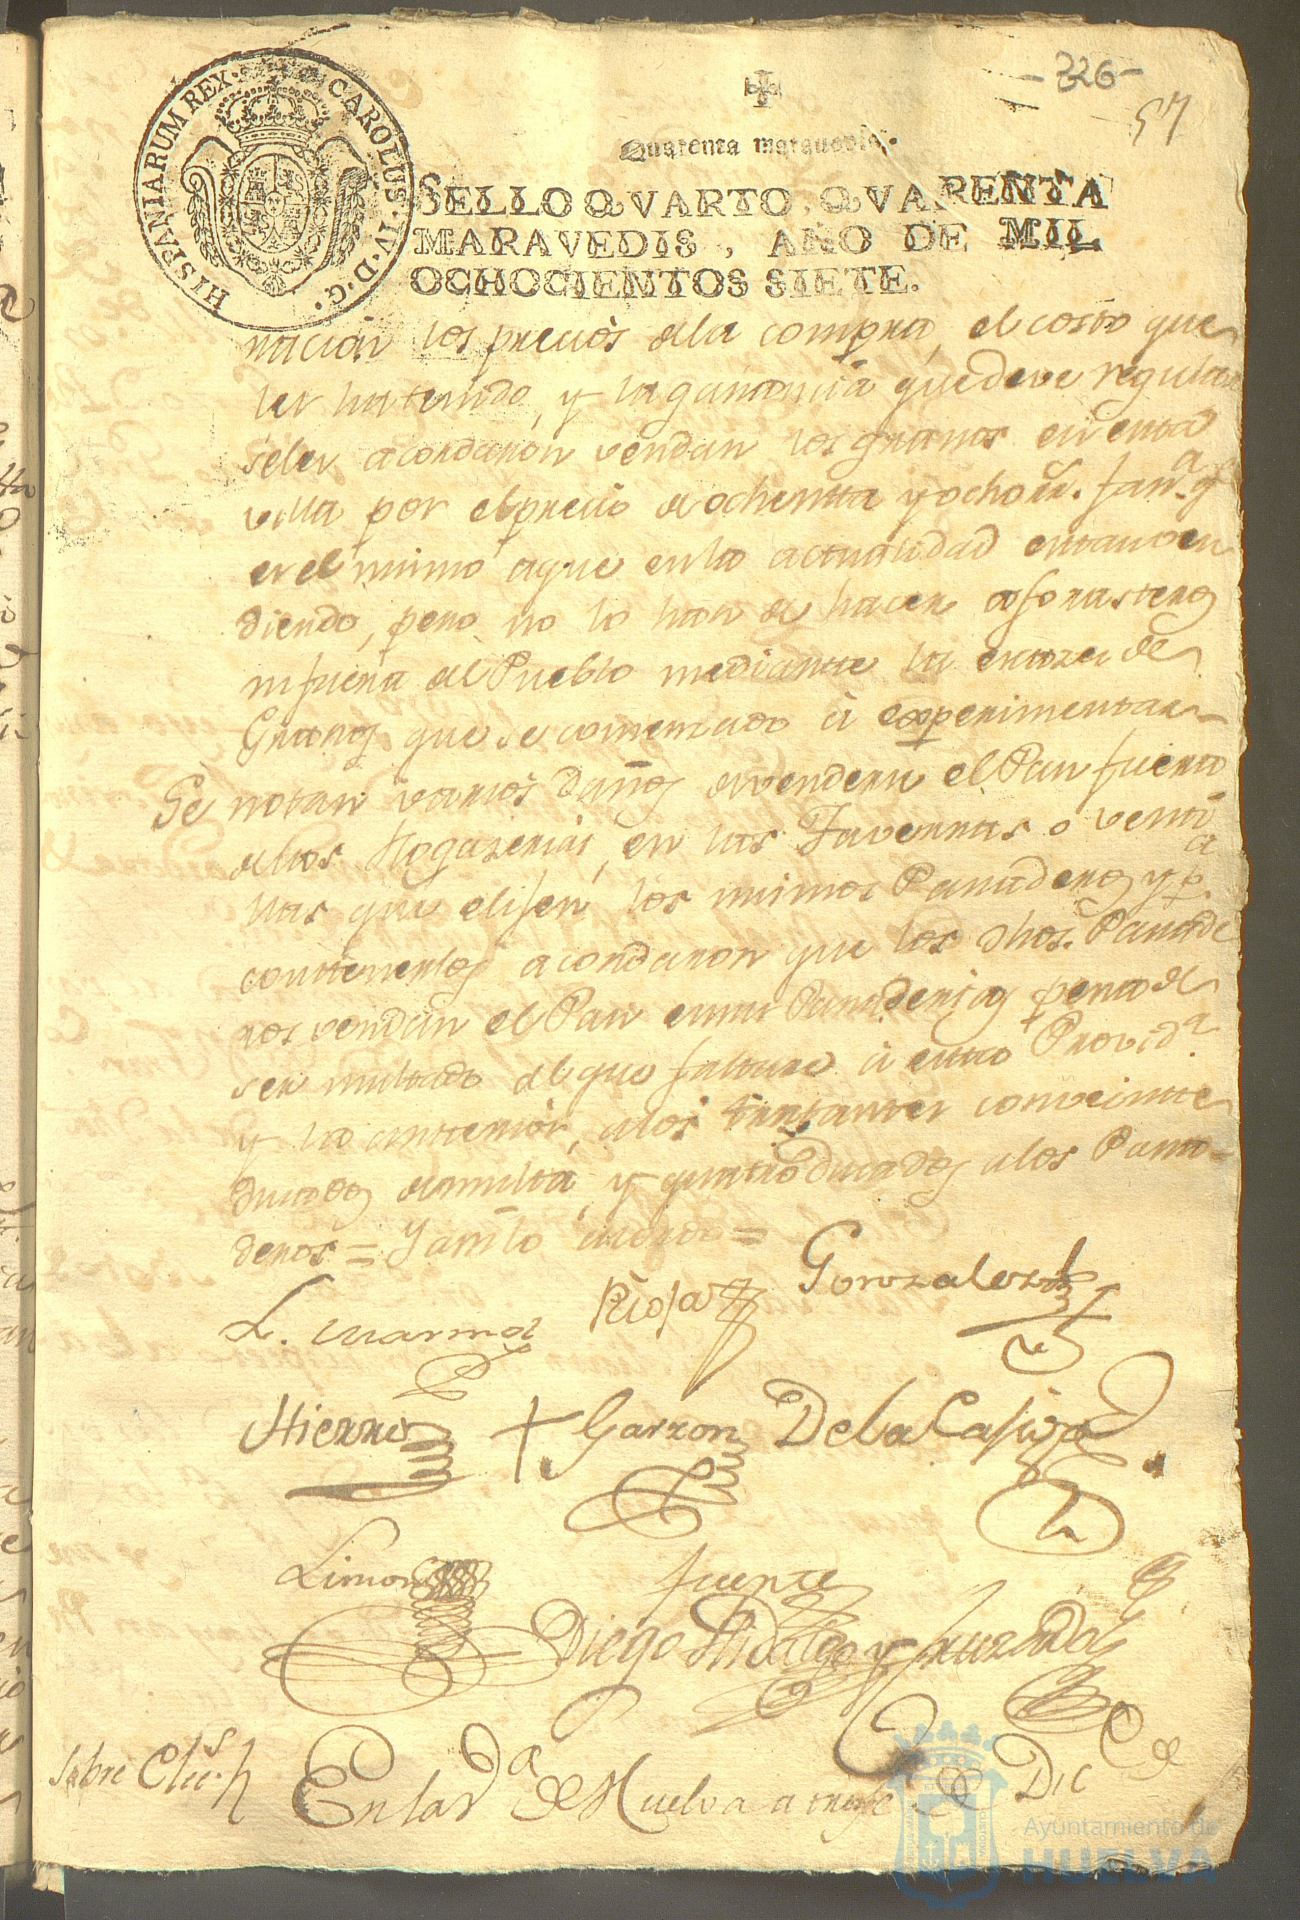 - 326 -
57
Quarenta maravedis.
HISPANIARUM REX · CAROLUS · IV · D · G ·
SELLO QVARTO, QVARENTA
MARAVEDIS, AÑO DE MIL
OCHOCIENTOS SIETE.
nacion los precios dela compra, el costo que
les ha tenido, y la ganancia que deve regular
seles acordaron vendan los granos en esta
villa por el precio de ochenta y ocho rr. fan.a q
es el mismo aque en la actualidad estan ven
diendo, pero no lo han de hacer a forasteros
ni fuera del Pueblo mediante la escases de
Granos que se comensado à experimentar
Se notan varios daños de venderse el Pan fuera
delas Hogazerias, en las Tavernas o venta
nas que elijen los mismos Panaderos y p.a
contenerlos acordaron que los dhos. Panade
ros vendan el Pan en sus Panaderias pena de
ser multado el que faltare à esta Provid.a
y la anterior, alos tratantes con veinte
ducados de multa, y quatro ducados alos Pana-
deros = Y asi lo acordo =
L. Marmol
Rioja
Gonzalez
Hierro
+ Garzon
De la Casa
Limon
Fuente
Diego Hidalgo y
sobre Elec.s
En la V.a de Huelva a trese de Dic.e de
Ayuntamiento de
HUELVA